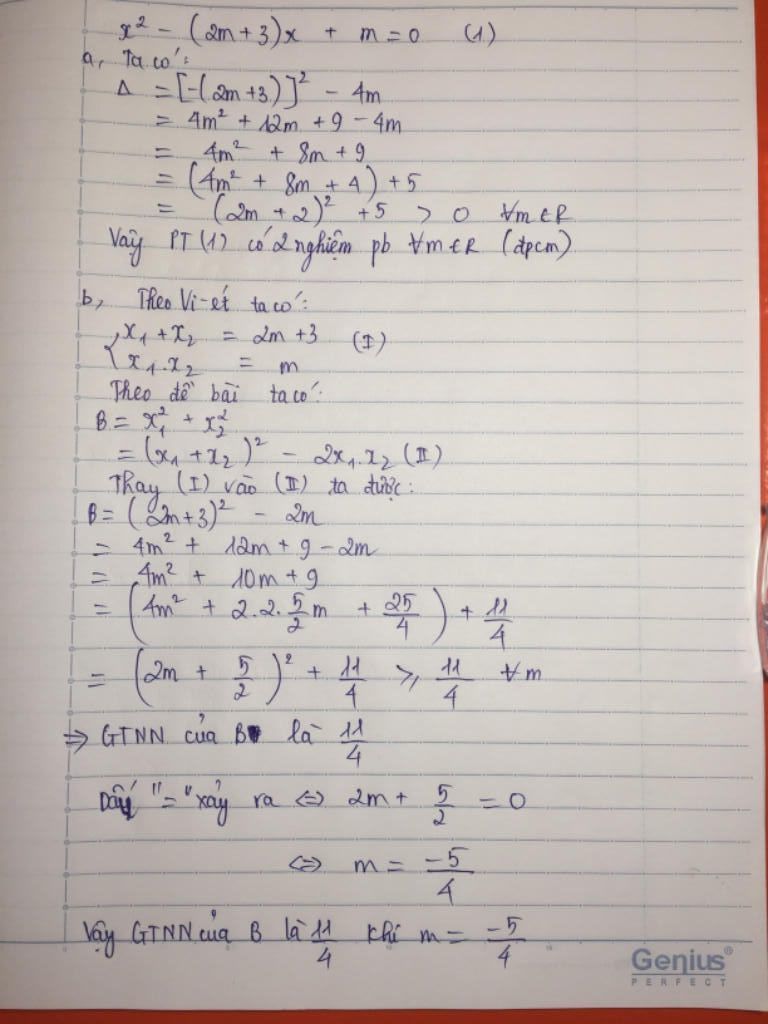 x² - (2m+3)x + m = 0 (1)
a, Ta có:
Δ = [-(2m+3)]² - 4m
= 4m² + 12m + 9 - 4m
= 4m² + 8m + 9
= (4m² + 8m + 4) + 5
= (2m + 2)² + 5 > 0 ∀m ∈ R
Vậy PT (1) có 2 nghiệm pb ∀m ∈ R (đpcm)
b, Theo Vi-ét ta có:
{x₁ + x₂ = 2m + 3 (I)
x₁.x₂ = m
Theo đề bài ta có:
B = x₁² + x₂²
= (x₁ + x₂)² - 2x₁.x₂ (II)
Thay (I) vào (II) ta được:
B = (2m+3)² - 2m
= 4m² + 12m + 9 - 2m
= 4m² + 10m + 9
= (4m² + 2.2.5/2m + 25/4) + 11/4
= (2m + 5/2)² + 11/4 ≥ 11/4 ∀m
⇒ GTNN của B là 11/4
Dấu "=" xảy ra ⇔ 2m + 5/2 = 0
⇔ m = -5/4
Vậy GTNN của B là 11/4 khi m = -5/4
Genius®
PERFECT